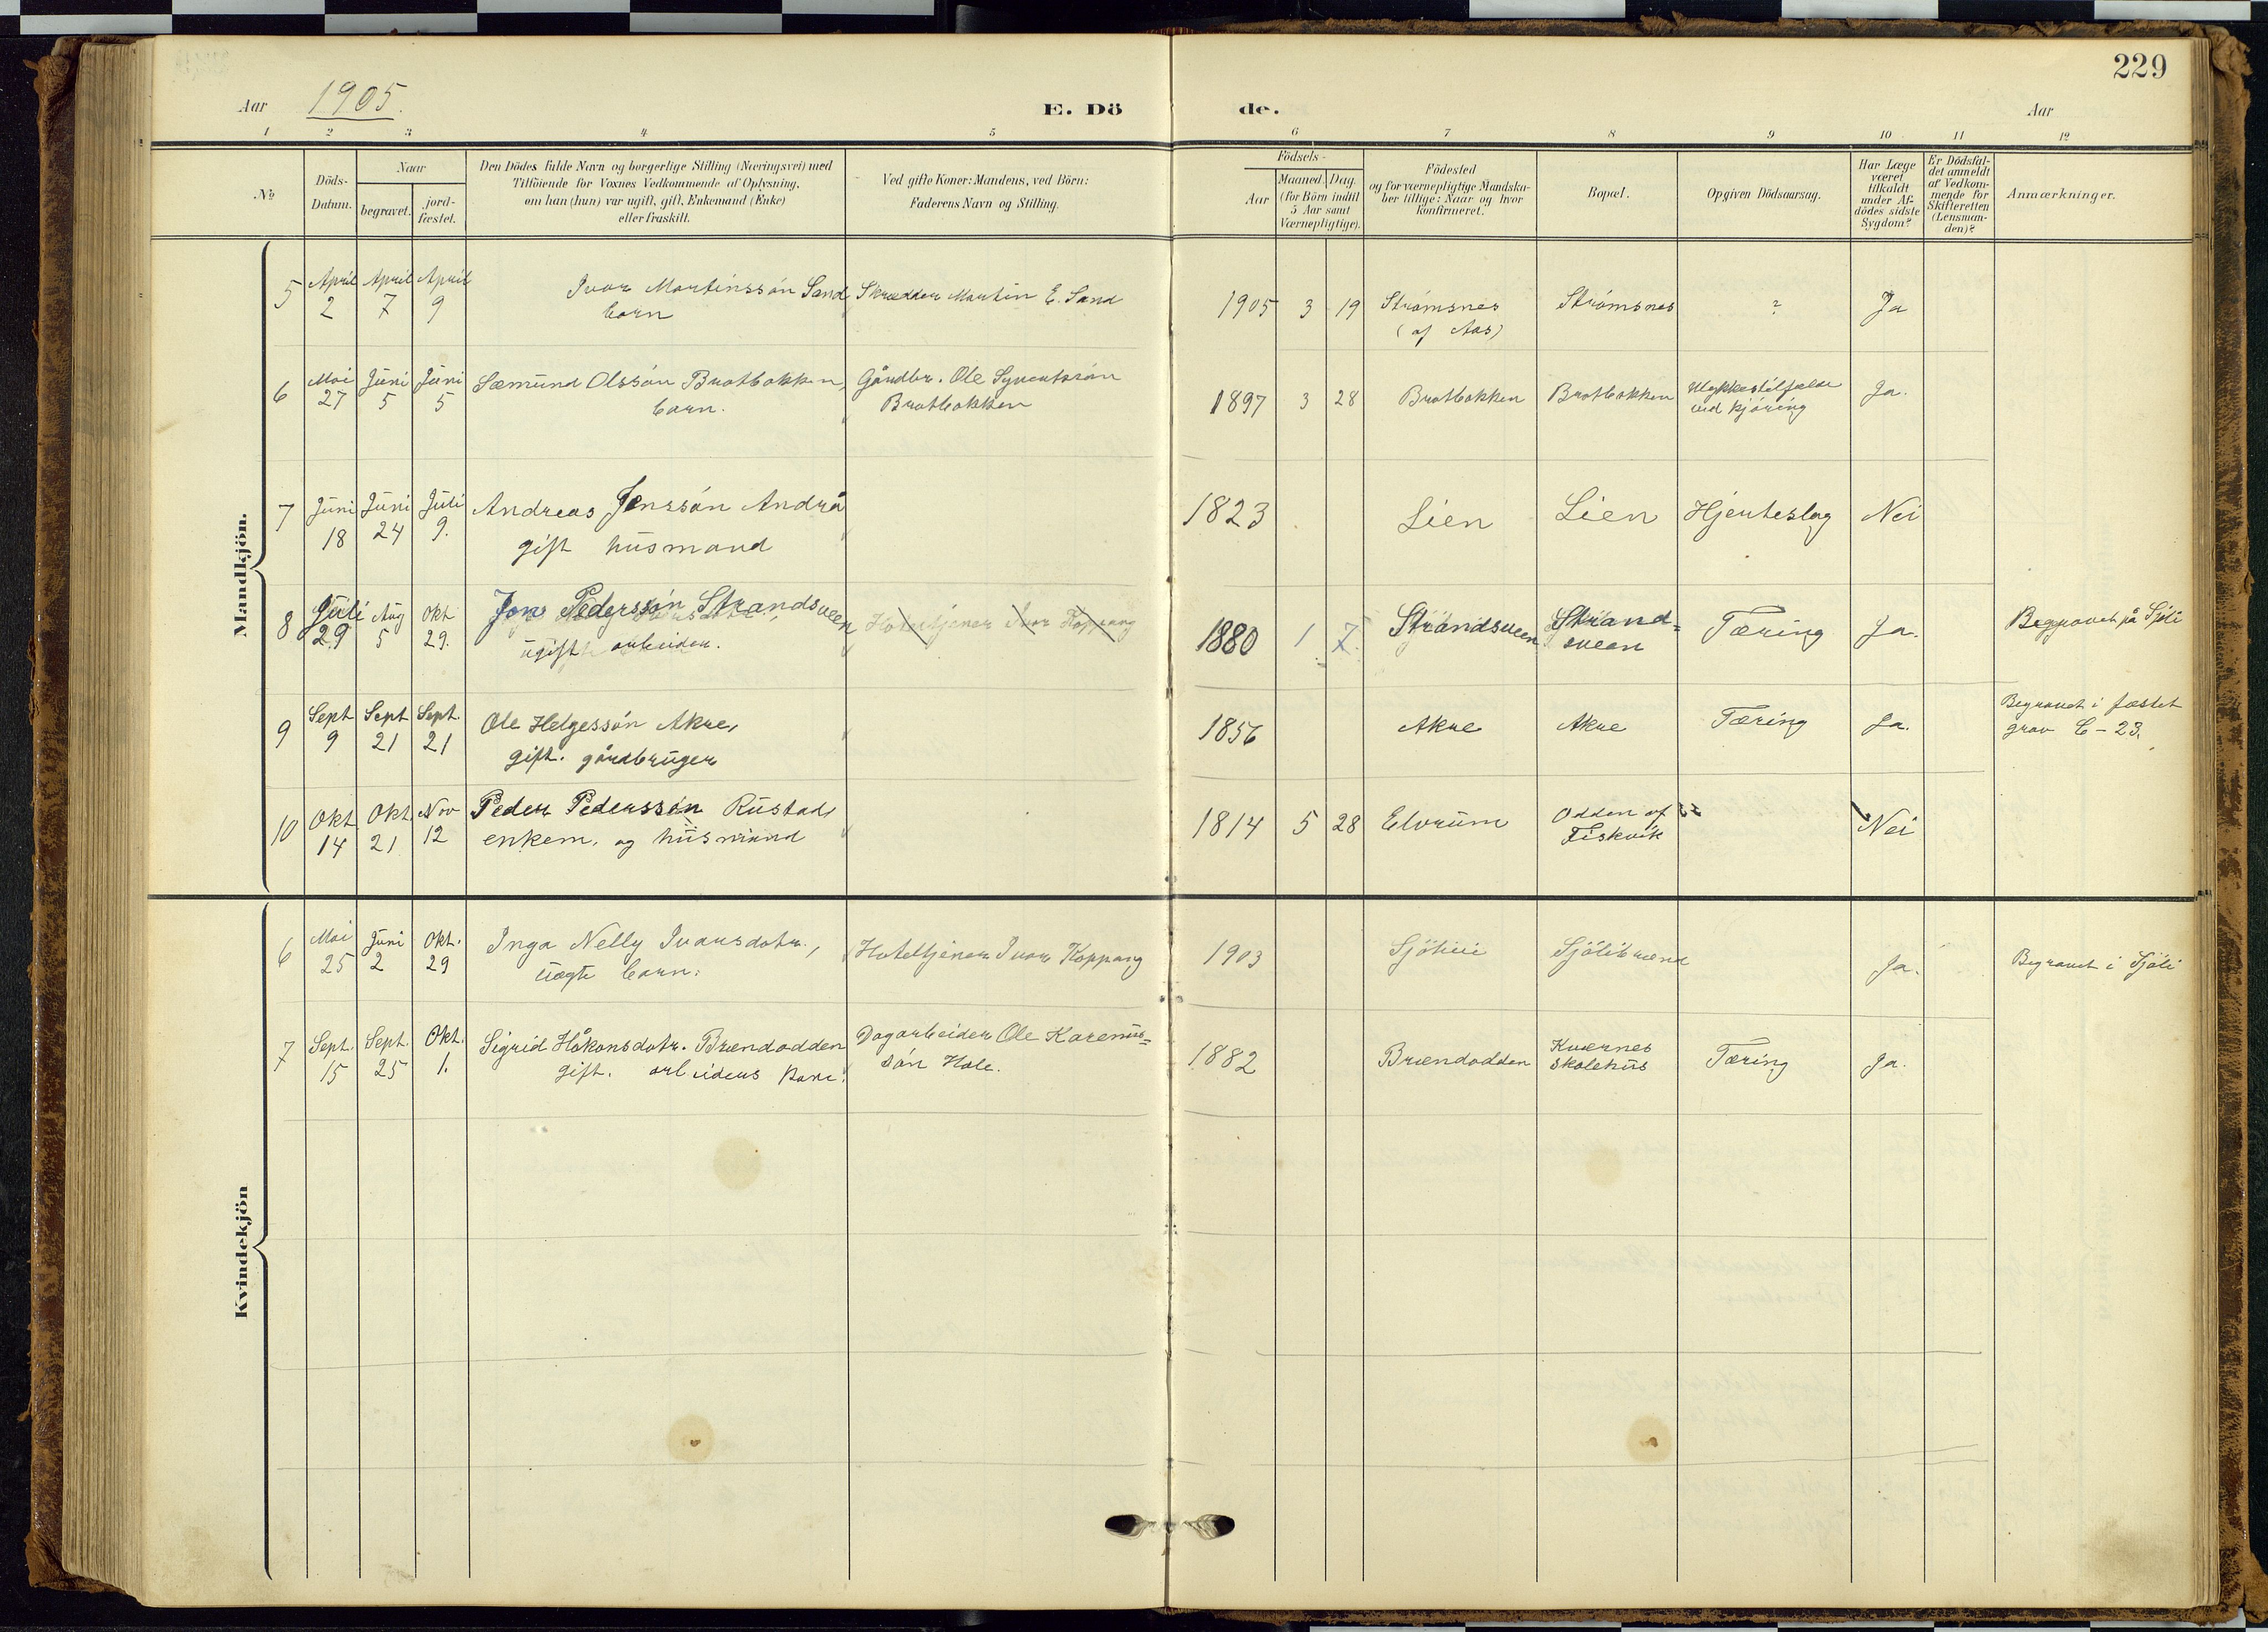 229
Aar 1905.
E. Dö
de.
Aar
1 2 3 4 5 6 7 8 9 10 11 12
No
Döds-Datum.
Naar
begravet.
jord-fæstet.
Den Dödes fulde Navn og borgerlige Stilling (Næringsvei) med
Tilföiende for Voxnes Vedkommende af Oplysning,
om han (hun) var ugift, gift, Enkemand (Enke)
eller fraskilt.
Ved gifte Koner: Mandens, ved Börn:
Faderens Navn og Stilling.
Födsels-
Aar
Maaned.
Dag.
(for Börn indtil
5 Aar samt
Værnepligtige).
Födested
og for værnepligtige Mandska-
ber tillige: Naar og hvor
konfirmeret.
Bopæl.
Opgiven Dödsaarsag.
Har Læge
været
tilkaldt
under Af-
dödes sidste
Sygdom?
Er Dödsfal-
det anmeldt
af Vedkom-
mende for
Skifteretten
(Lensman-
den)?
Anmærkninger.
Mandkjön.
5 April 2 April 7 April 9 Ivar Martinssön Sand, Skrædder Martin E. Sand 1905 3 19 Strömsnes Strömsnes ? Ja
barn (af Aas)
6 Mai 27 Juni 5 Juni 5 Sæmund Olssön Bratbakken, Gårdbr. Ole 1897 3 28 Bratbakken Bratbakken Ulykkestilfælde Ja.
barn. Bratbakken ved kjöring
7 Juni 18 Juni 24 Juli 9. Andreas Jenssön Andrå 1823 Lien Lien Hjerteslag Nei
gift husmand
8 Juli 29 Aug 5 Okt 29. Jon Pederssön Strandsveen Hoteltjener Ivar Koppang 1880 1 7. Strandsveen Strand= Tæring Ja. Begravet på Sjöli
ugift arbeider. sveen
9 Sept 9 Sept 21 Sept. 21 Ole Helgessön Akre, 1856 Akre Akre Tæring Ja. Begravet i fæstet
gift. gårdbruger grav C-23.
10 Okt 14 Okt. 21 Nov 12 Peder Pederssön Rustad, 1814 5 28 Elvrum Odden af Nei
enkem. og husmand Fiskvik
Kvindekjön
6 Mai 25 Juni 2 Okt. 29 Inga Nelly Ivarsdatr., Hoteltjener Ivar Koppang 1903 Sjölibrænd Ja. Begravet i Sjöli
uægte barn.
7 Sept. 15 Sept. 25 Okt. 1. Sigrid Håkonsdatr. Brændodden Dagarbeider Ole Karenus= 1882 Brændodden Kværnes Tæring Ja.
gift. arbeiders kone. sön Hole. skolehus